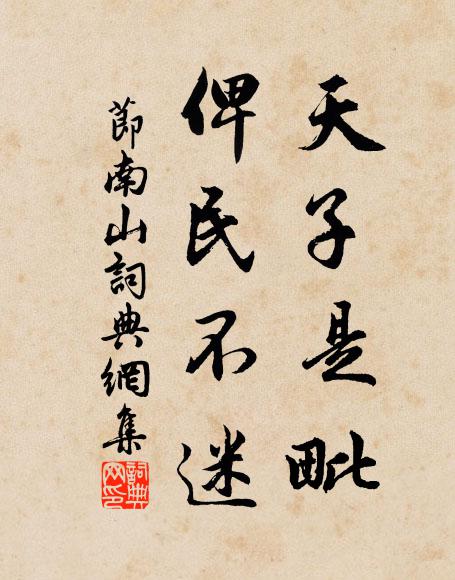 天子是毗
俾民不迷
節南山詞典網集
詞典网印